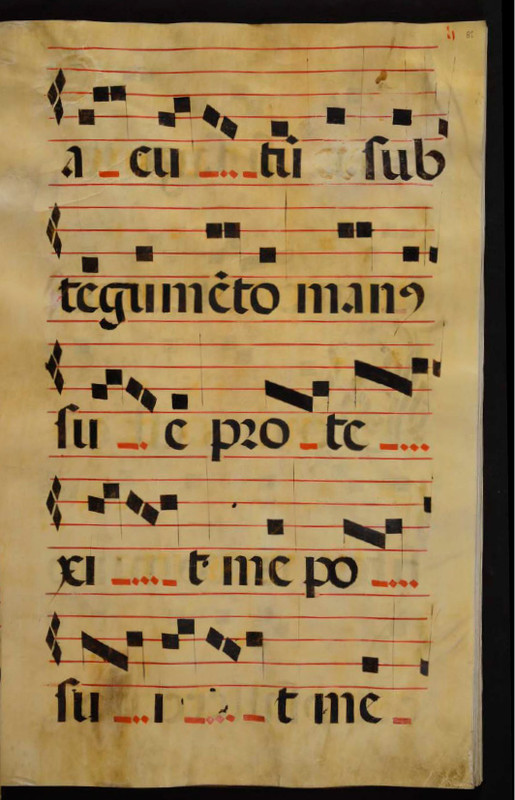 a cu tū sub
tegumēto manꝰ
su e pro te
xi t me po
su i t me